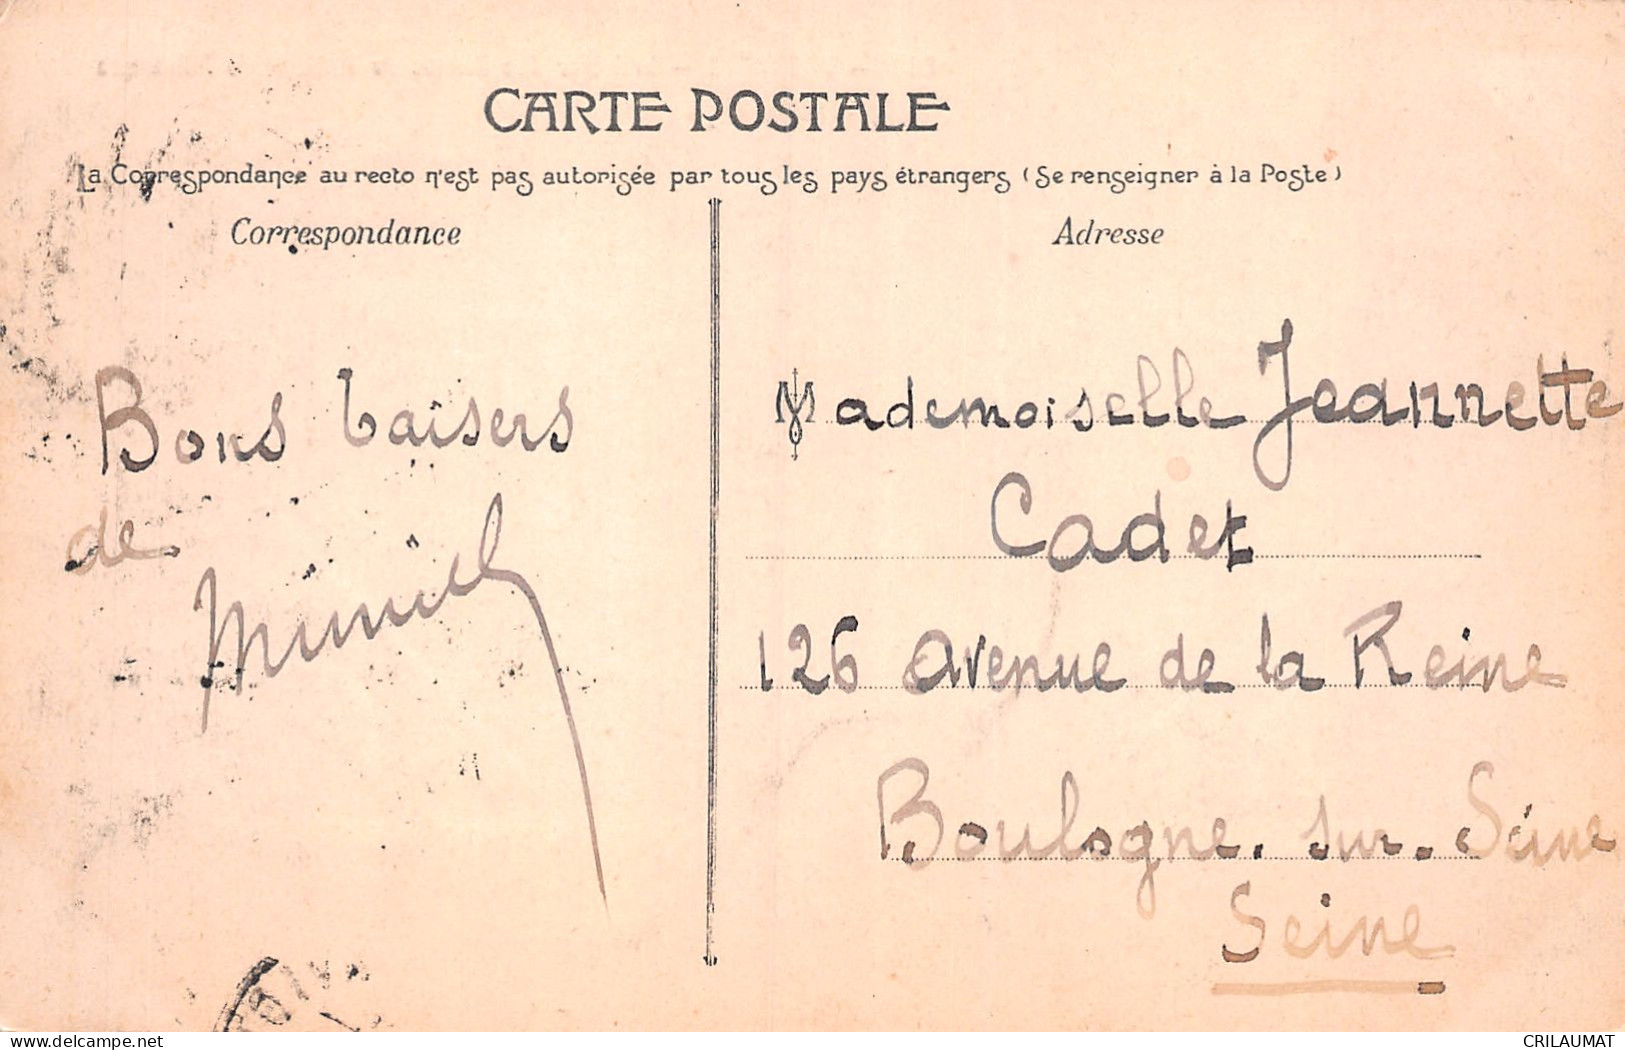 CARTE POSTALE
La Correspondance au recto n'est pas autorisée par tous les pays étrangers (Se renseigner à la Poste)
Correspondance
Adresse
Bons baisers
de
Mademoiselle Jeannette
Cadet
126 avenue de la Reine
Boulogne. sur. Seine
Seine
delcampe.net
CRILAUMAT